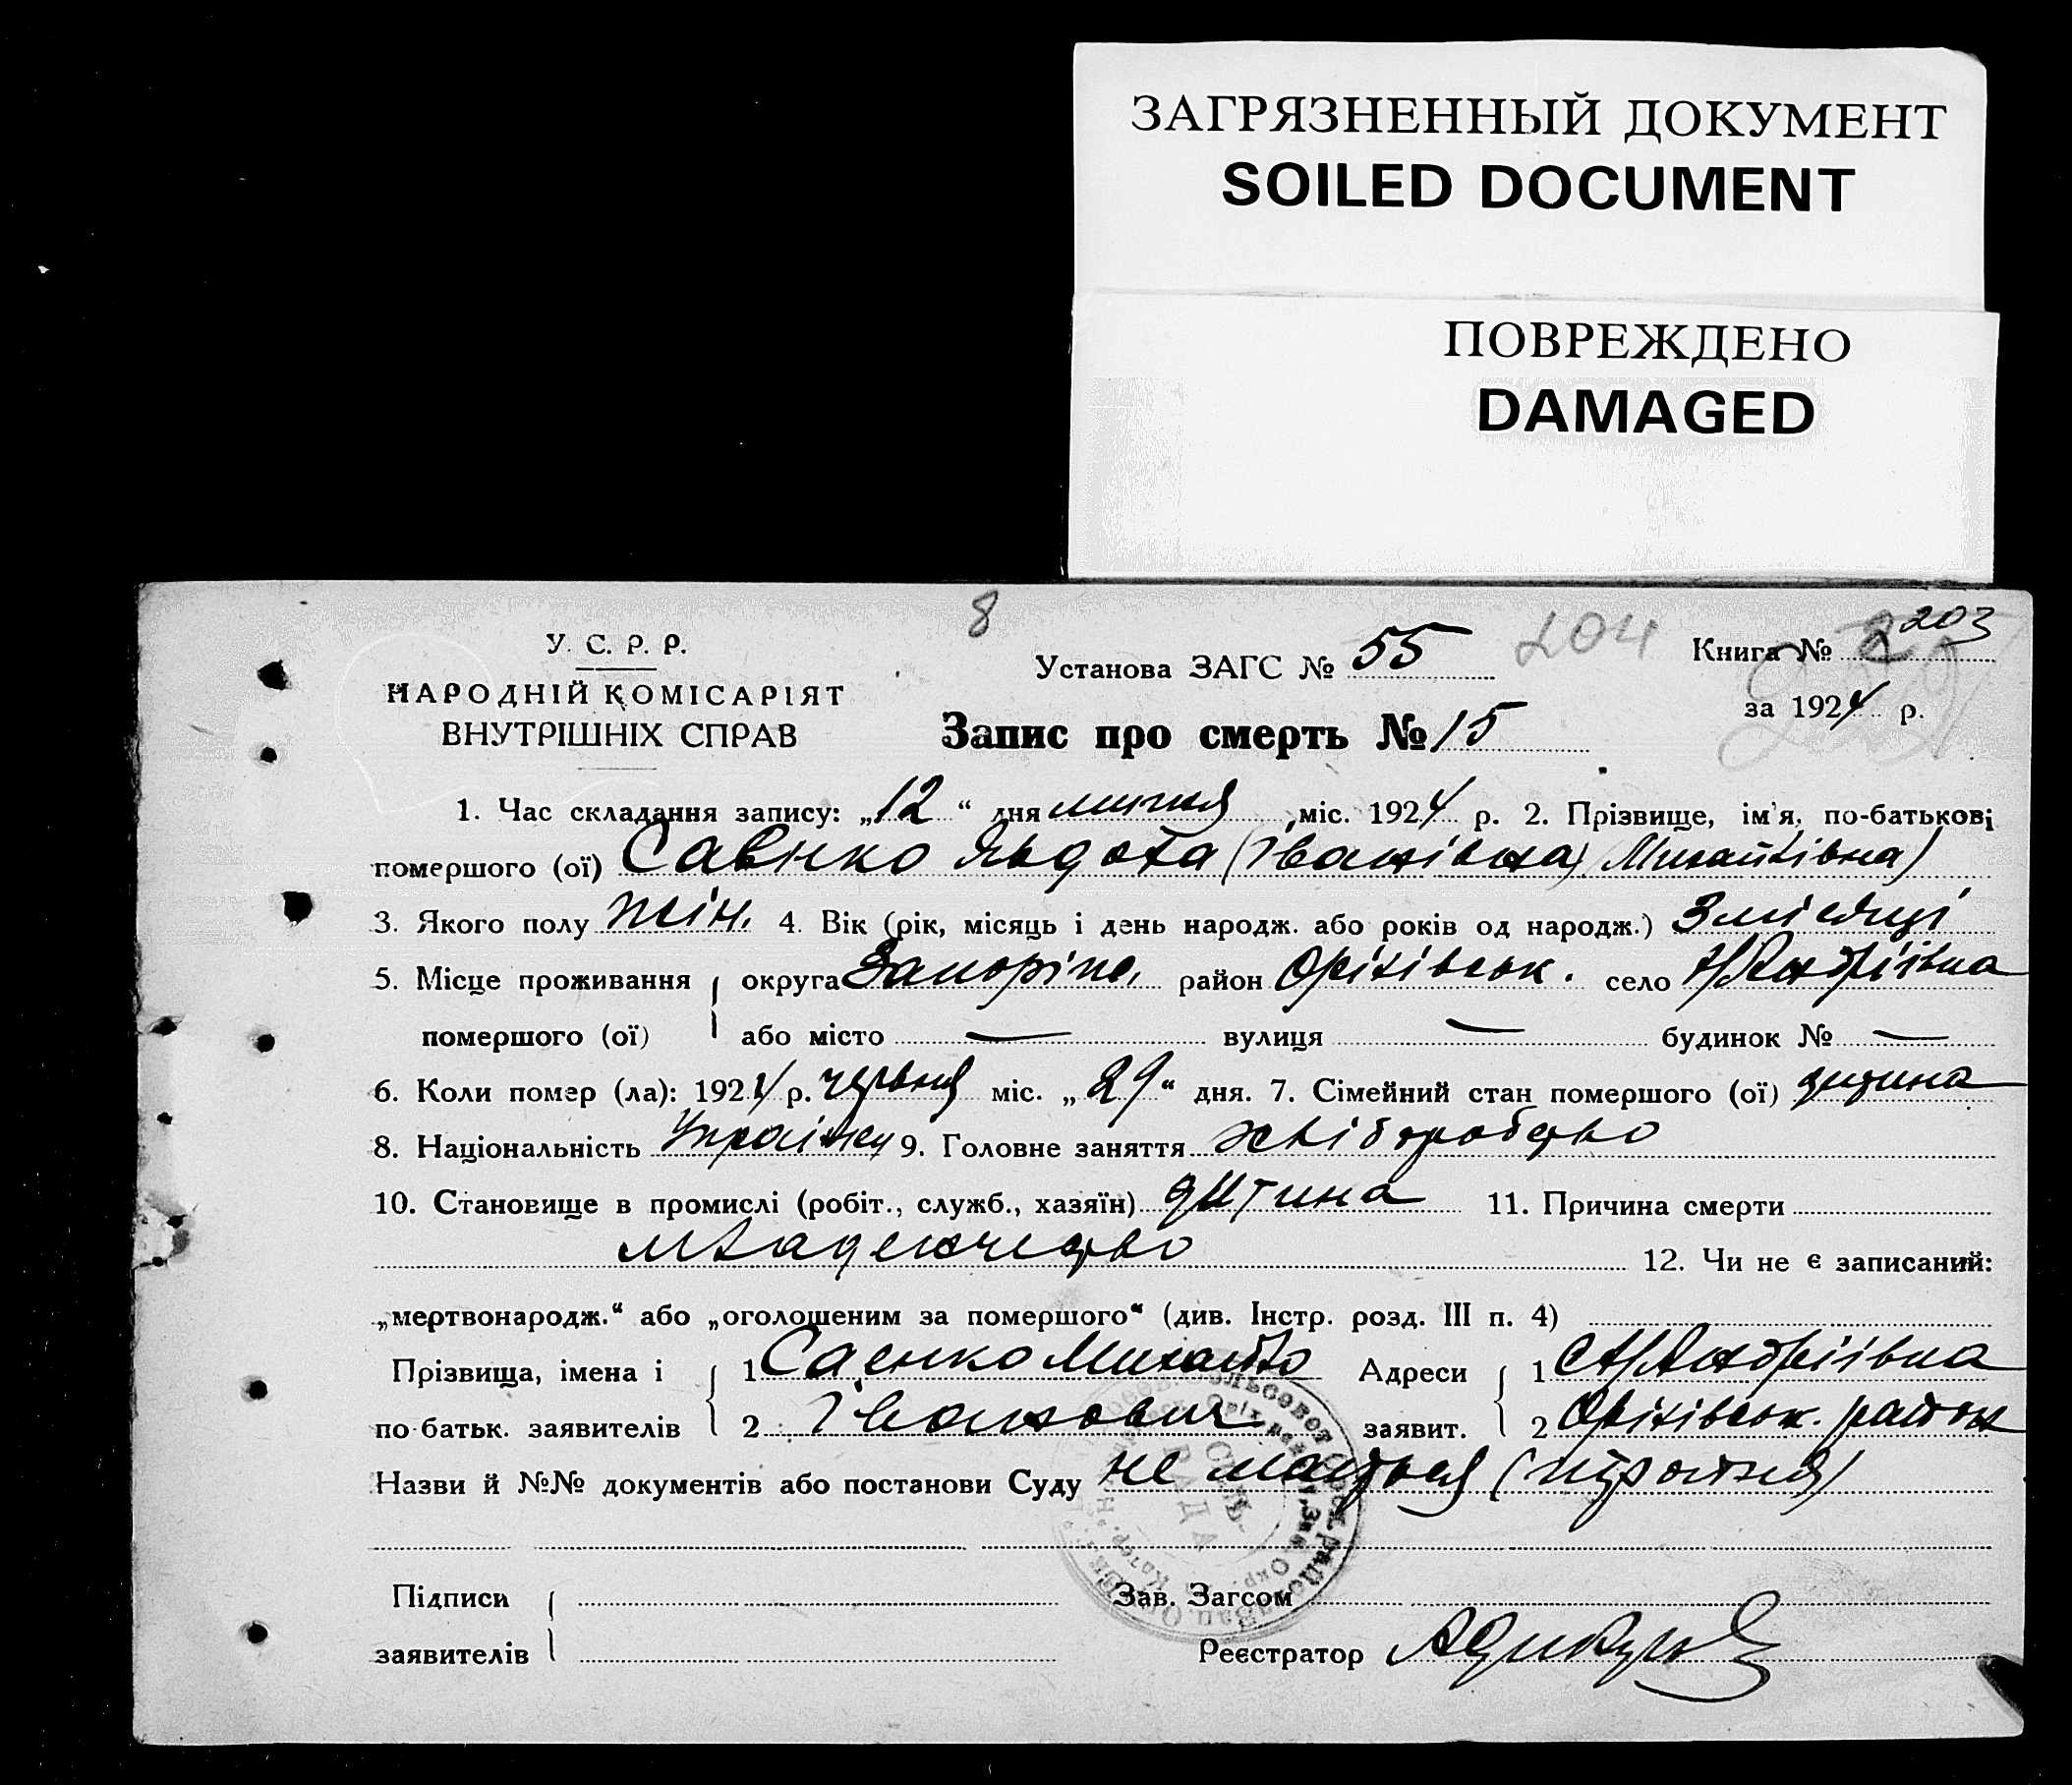 ЗАГРЯЗНЕННЫЙ ДОКУМЕНТ
SOILED DOCUMENT
ПОВРЕЖДЕНО
DAMAGED
8
У. С. Р. Р.
НАРОДНІЙ КОМІСАРІЯТ
ВНУТРІШНІХ СПРАВ
Установа ЗАГС № 55
204
Книга № 2 203
за 1924 р.
Запис про смерть № 15
1. Час складання запису: „12“ дня липня міс. 1924 р. 2. Прізвище, ім'я, по-батькові
помершого (ої) Савенко Явдоха (Іванівна) Михайлівна)
3. Якого полу жін. 4. Вік (рік, місяць і день народж. або років од народж.) 3 місяці
5. Місце проживання округа Запоріж. район Оріхівськ. село Н/Андріївка
помершого (ої) або місто — вулиця — будинок № —
6. Коли помер (ла): 1924 р. червня міс. „29“ дня. 7. Сімейний стан помершого (ої) дитина
8. Національність Україн. 9. Головне заняття хліборобство
10. Становище в промислі (робіт., служб., хазяїн) дитина 11. Причина смерти
младенчество 12. Чи не є записаний:
„мертвонародж.“ або „оголошеним за помершого“ (див. Інстр. розд. III п. 4)
Прізвища, імена і 1 Саєнко Михайло Адреси 1 с Н/Андріївка
по-батьк. заявителів 2 Іванович заявит. 2 Оріхівськ. район
Назви й №№ документів або постанови Суду не мається
Підписи Зав. Загсом
заявителів Реєстратор
СІЛЬ-
РАДА